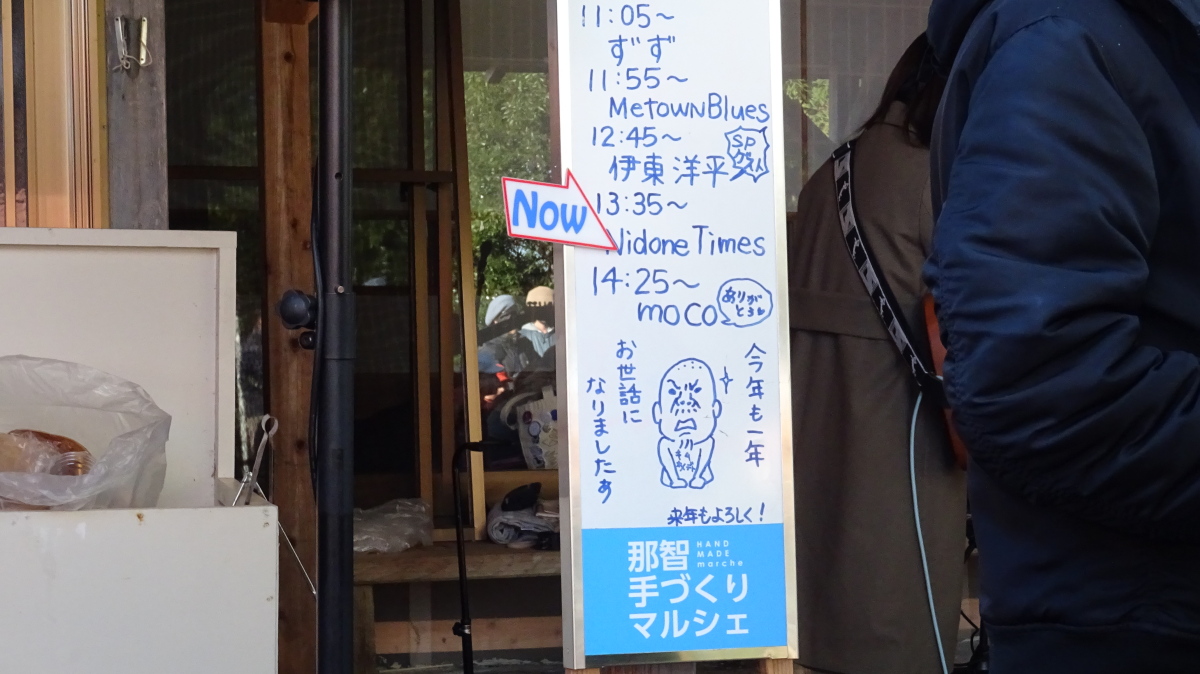 11:05～
ずず
11:55～
MetownBlues
12:45～
SP
ゲスト
伊東洋平
Now
13:35～
Nidone Times
14:25～
moco
ありが
とう
今年も一年
お世話に
なりましたぁ
来年もよろしく!
那智
HAND
MADE
marche
手づくり
マルシェ